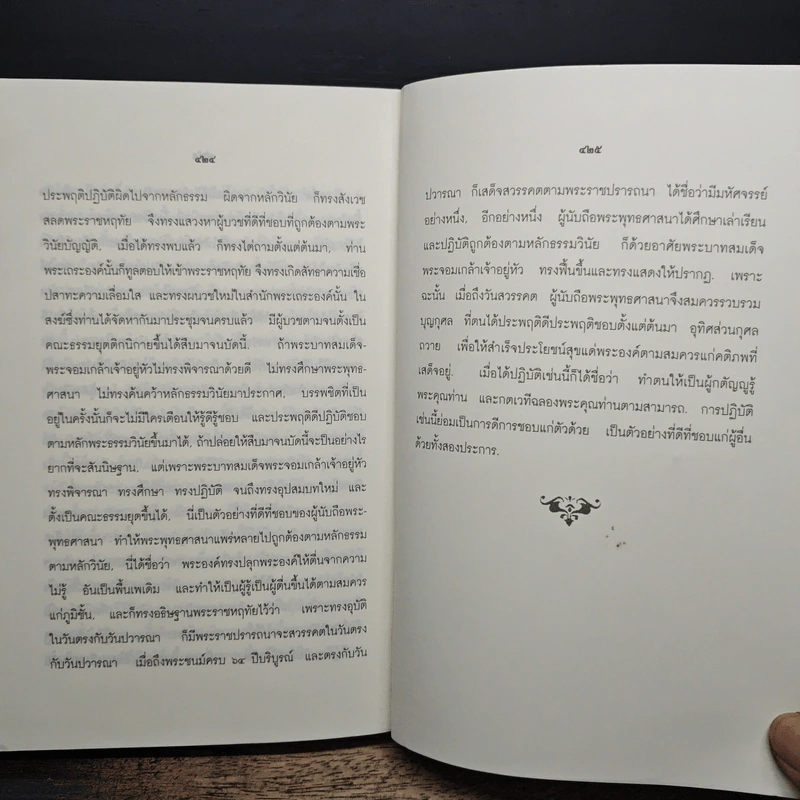 ๔๒๔
ประพฤติปฏิบัติผิดไปจากหลักธรรม ผิดจากหลักวินัย ก็ทรงสังเวช
สลดพระราชหฤทัย จึงทรงแสวงหาผู้บวชที่ดีที่ชอบที่ถูกต้องตามพระ
วินัยบัญญัติ, เมื่อได้ทรงพบแล้ว ก็ทรงไต่ถามตั้งแต่ต้นมา, ท่าน
พระเถระองค์นั้นก็ทูลตอบให้เข้าพระราชหฤทัย จึงทรงเกิดสัทธาความเชื่อ
ปสาทะความเลื่อมใส และทรงผนวชใหม่ในสำนักพระเถระองค์นั้น ใน
สงฆ์ซึ่งท่านได้จัดหากันมาประชุมจนครบแล้ว มีผู้บวชตามจนตั้งเป็น
คณะธรรมยุตติกนิกายขึ้นได้สืบมาจนบัดนี้. ถ้าพระบาทสมเด็จ-
พระจอมเกล้าเจ้าอยู่หัวไม่ทรงพิจารณาด้วยดี ไม่ทรงศึกษาพระพุทธ-
ศาสนา ไม่ทรงค้นคว้าหลักธรรมวินัยมาประกาศ, บรรพชิตที่เป็น
อยู่ในครั้งนั้นก็จะไม่มีใครเตือนให้รู้ดีรู้ชอบ และประพฤติดีปฏิบัติชอบ
ตามหลักพระธรรมวินัยขึ้นมาได้, ถ้าปล่อยให้สืบมาจนบัดนี้จะเป็นอย่างไร
ยากที่จะสันนิษฐาน, แต่เพราะพระบาทสมเด็จพระจอมเกล้าเจ้าอยู่หัว
ทรงพิจารณา ทรงศึกษา ทรงปฏิบัติ จนถึงทรงอุปสมบทใหม่ และ
ตั้งเป็นคณะธรรมยุตขึ้นได้, นี่เป็นตัวอย่างที่ดีที่ชอบของผู้นับถือพระ-
พุทธศาสนา ทำให้พระพุทธศาสนาแพร่หลายไปถูกต้องตามหลักธรรม
ตามหลักวินัย, นี้ได้ชื่อว่า พระองค์ทรงปลุกพระองค์ให้ตื่นจากความ
ไม่รู้ อันเป็นพื้นเพเดิม และทำให้เป็นผู้รู้เป็นผู้ตื่นขึ้นได้ตามสมควร
แก่ภูมิชั้น, และก็ทรงอธิษฐานพระราชหฤทัยไว้ว่า เพราะทรงอุบัติ
ในวันตรงกับวันปวารณา ก็มีพระราชปรารถนาจะสวรรคตในวันตรง
กับวันปวารณา เมื่อถึงพระชนม์ครบ ๖๔ ปีบริบูรณ์ และตรงกับวัน
๔๒๕
ปวารณา ก็เสด็จสวรรคตตามพระราชปรารถนา ได้ชื่อว่ามีมหัศจรรย์
อย่างหนึ่ง, อีกอย่างหนึ่ง ผู้นับถือพระพุทธศาสนาได้ศึกษาเล่าเรียน
และปฏิบัติถูกต้องตามหลักธรรมวินัย ก็ด้วยอาศัยพระบาทสมเด็จ
พระจอมเกล้าเจ้าอยู่หัว ทรงฟื้นขึ้นและทรงแสดงให้ปรากฏ, เพราะ
ฉะนั้น เมื่อถึงวันสวรรคต ผู้นับถือพระพุทธศาสนาจึงสมควรรวบรวม
บุญกุศล ที่ตนได้ประพฤติดีประพฤติชอบตั้งแต่ต้นมา อุทิศส่วนกุศล
ถวาย เพื่อให้สำเร็จประโยชน์สุขแด่พระองค์ตามสมควรแก่คติภพที่
เสด็จอยู่. เมื่อได้ปฏิบัติเช่นนี้ก็ได้ชื่อว่า ทำตนให้เป็นผู้กตัญญูรู้
พระคุณท่าน และกตเวทีฉลองพระคุณท่านตามสามารถ. การปฏิบัติ
เช่นนี้ย่อมเป็นการดีการชอบแก่ตัวด้วย เป็นตัวอย่างที่ดีที่ชอบแก่ผู้อื่น
ด้วยทั้งสองประการ.